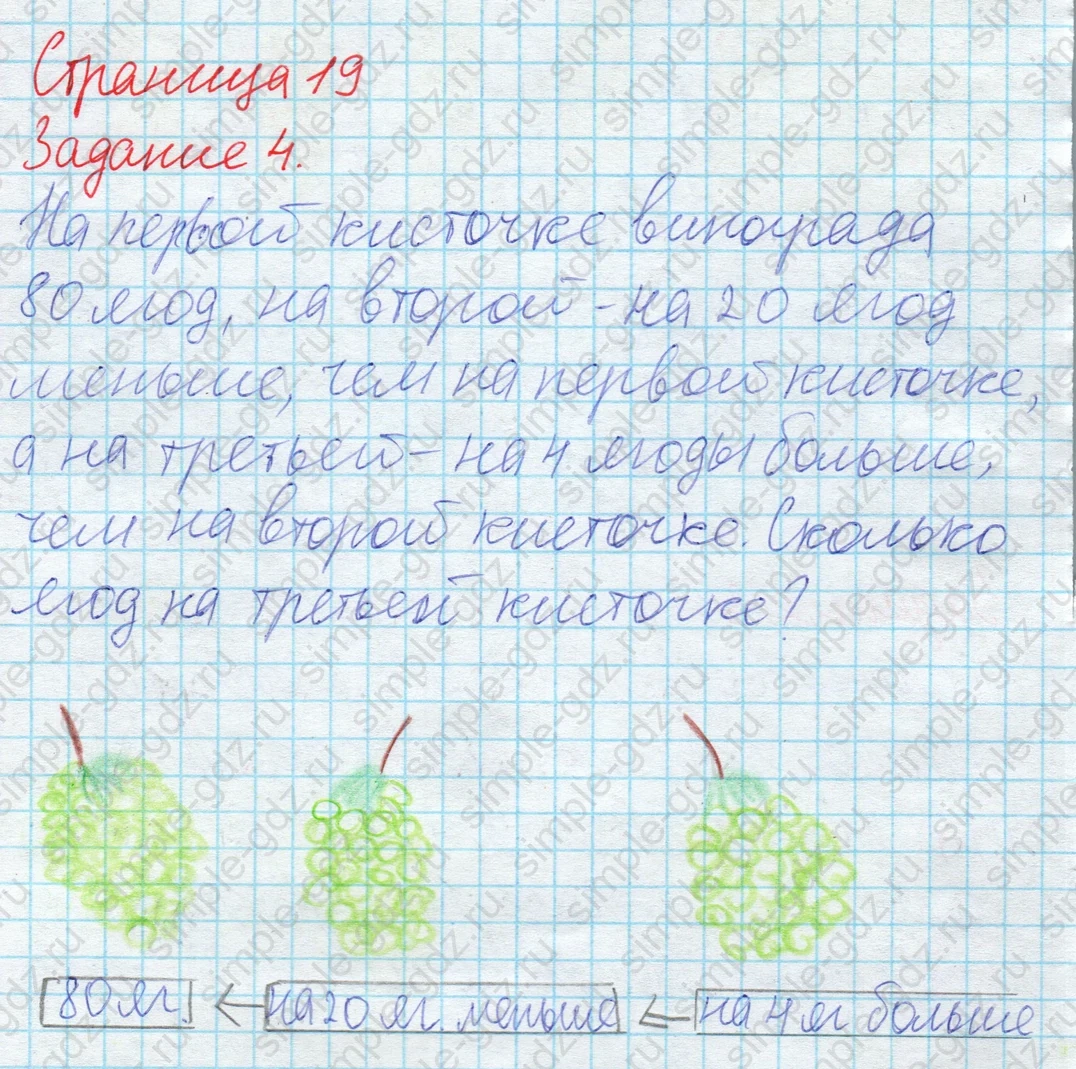 Страница 19
Задание 4.
На первой кисточке винограда
80 ягод, на второй - на 20 ягод
меньше, чем на первой кисточке,
а на третьей - на 4 ягоды больше,
чем на второй кисточке. Сколько
ягод на третьей кисточке?
80 яг. ← на 20 яг. меньше ← на 4 яг больше
simple-gdz.ru